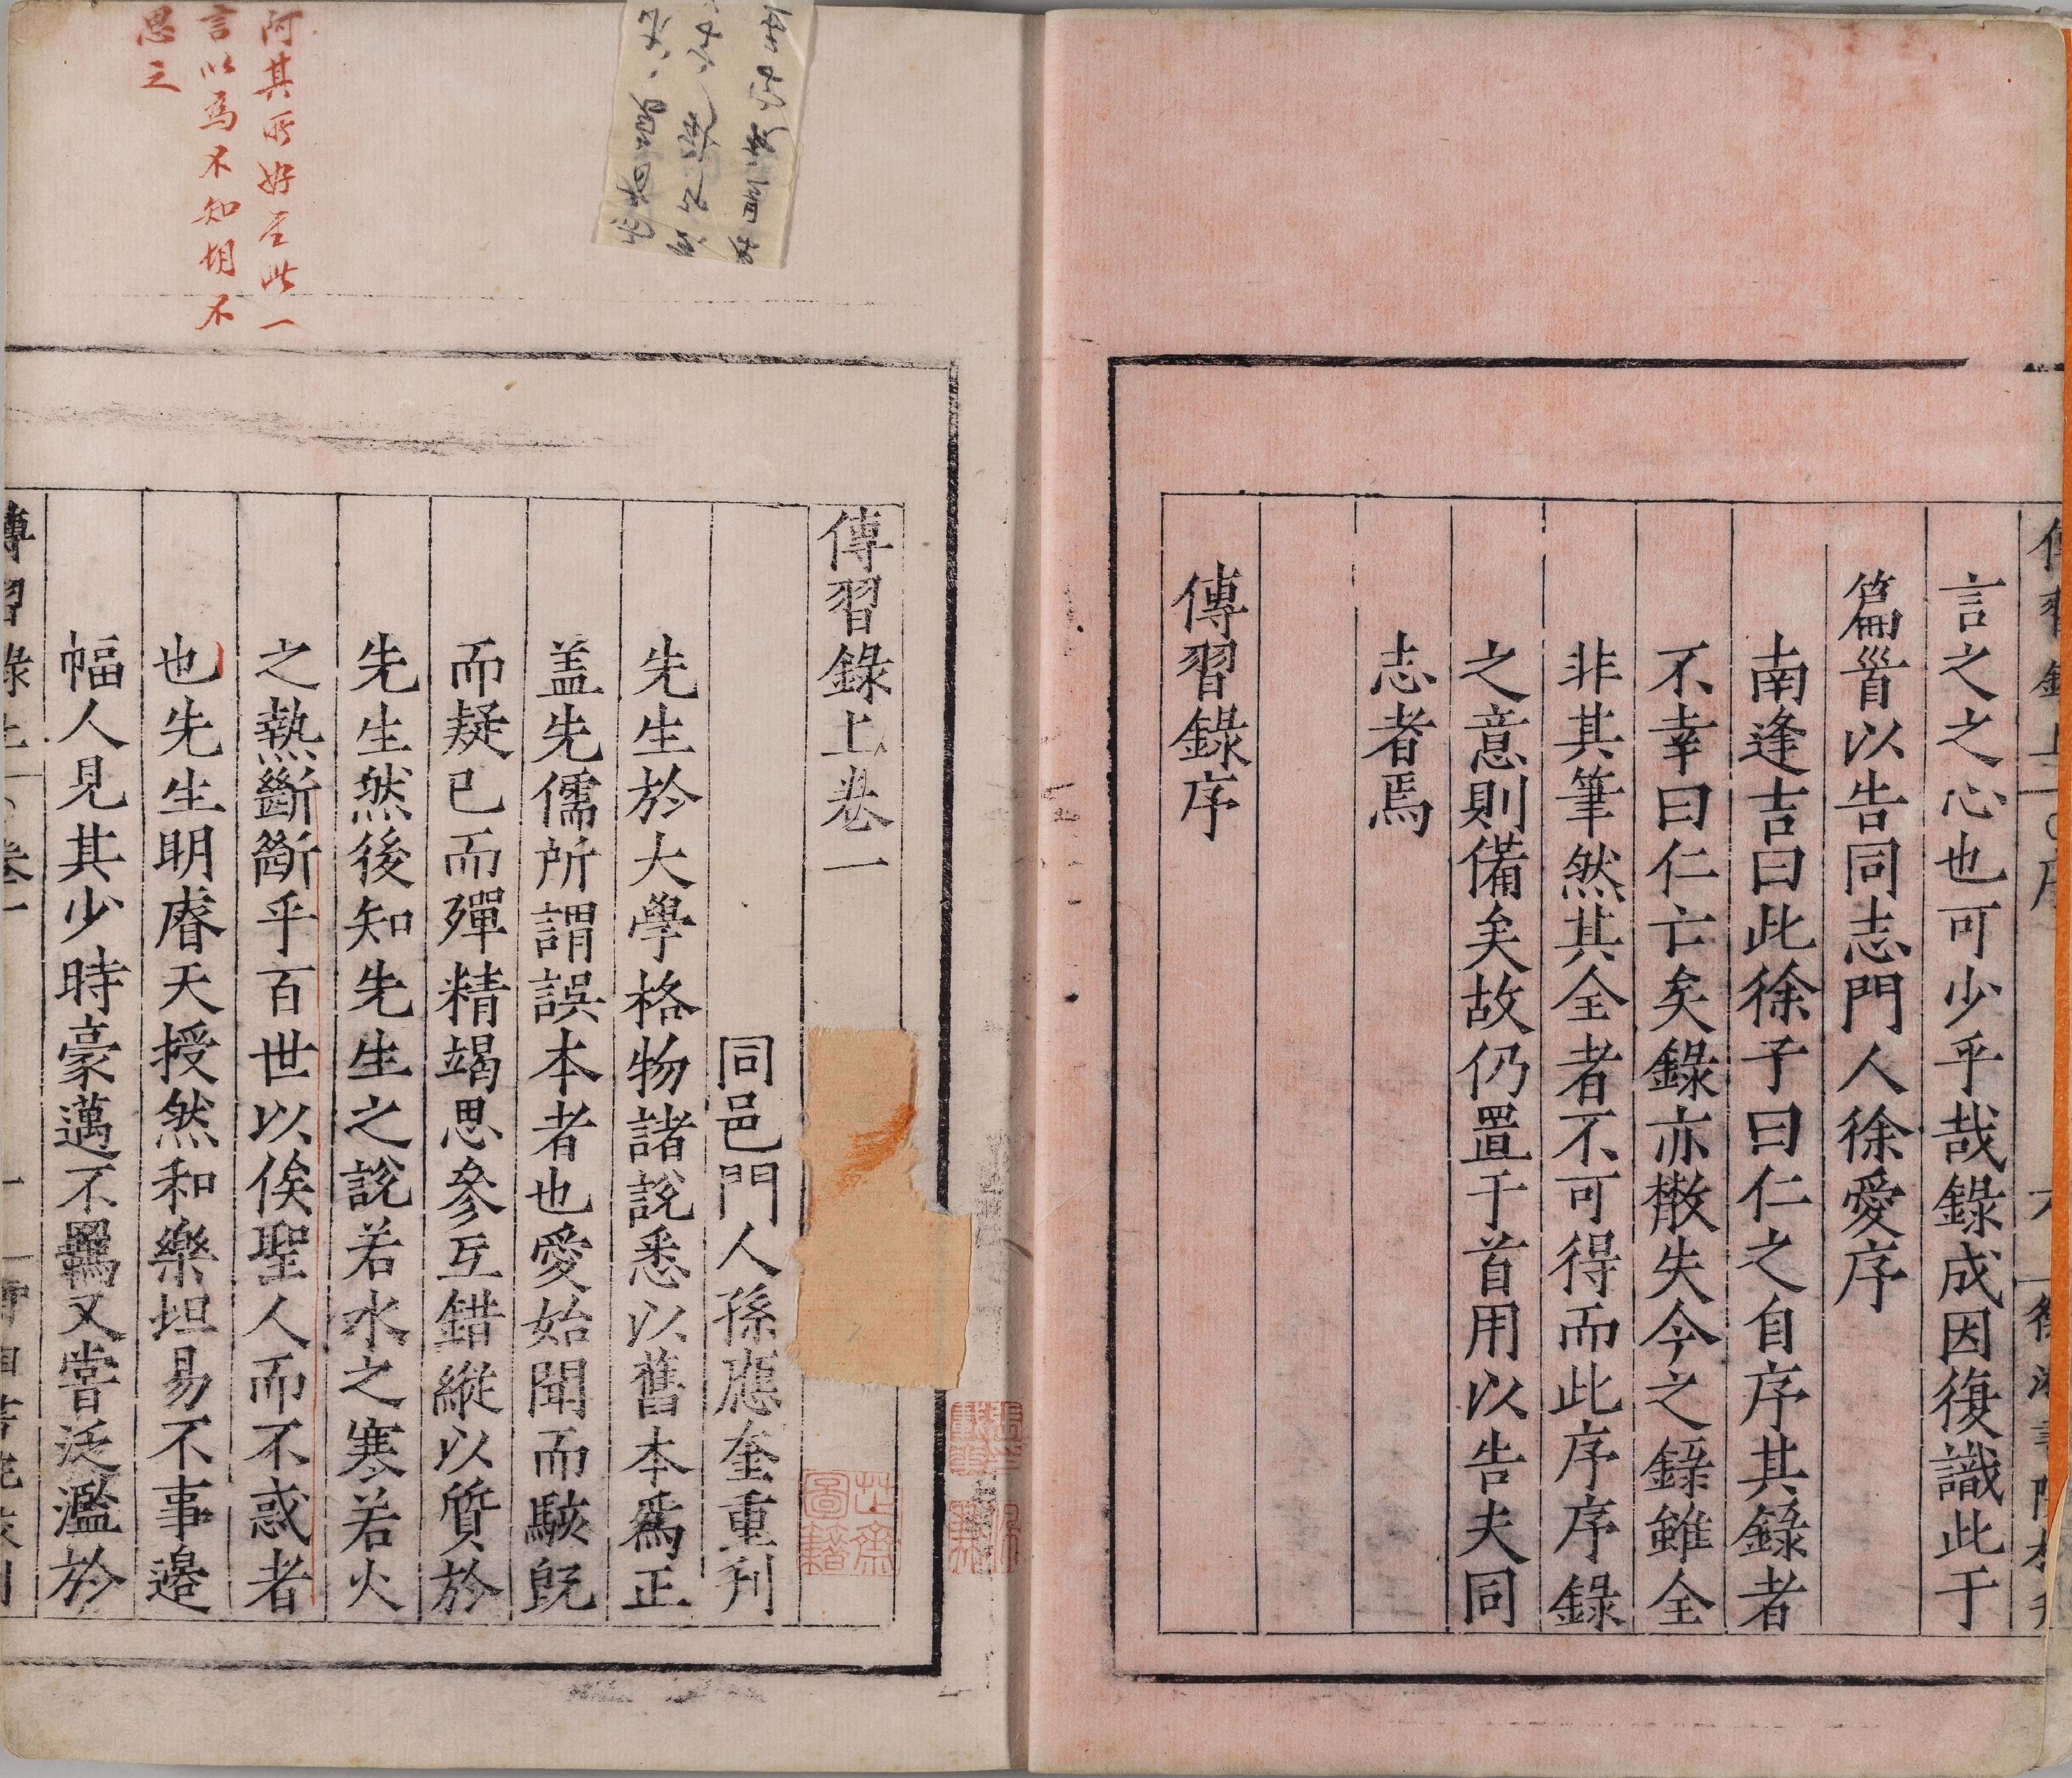 言之之心也可少乎哉錄成因復識此于
篇首以告同志門人徐愛序
南逢吉曰此徐子曰仁之自序其錄者
不幸曰仁亡矣錄亦散失今之錄雖全
非其筆然其全者不可得而此序序錄
之意則備矣故仍置于首用以告夫同
志者焉
傳習錄序
阿其所好至此一
言以為不知胡不
思之
傳習錄上卷一
同邑門人孫應奎重刋
先生於大學格物諸說悉以舊本爲正
盖先儒所謂誤本者也愛始聞而駭既
而疑已而殫精竭思參互錯縱以質於
先生然後知先生之說若水之寒若火
之熱斷斷乎百世以俟聖人而不惑者
也先生明睿天授然和樂坦易不事邉
幅人見其少時豪邁不羈又嘗泛濫於
芷齋圖籍